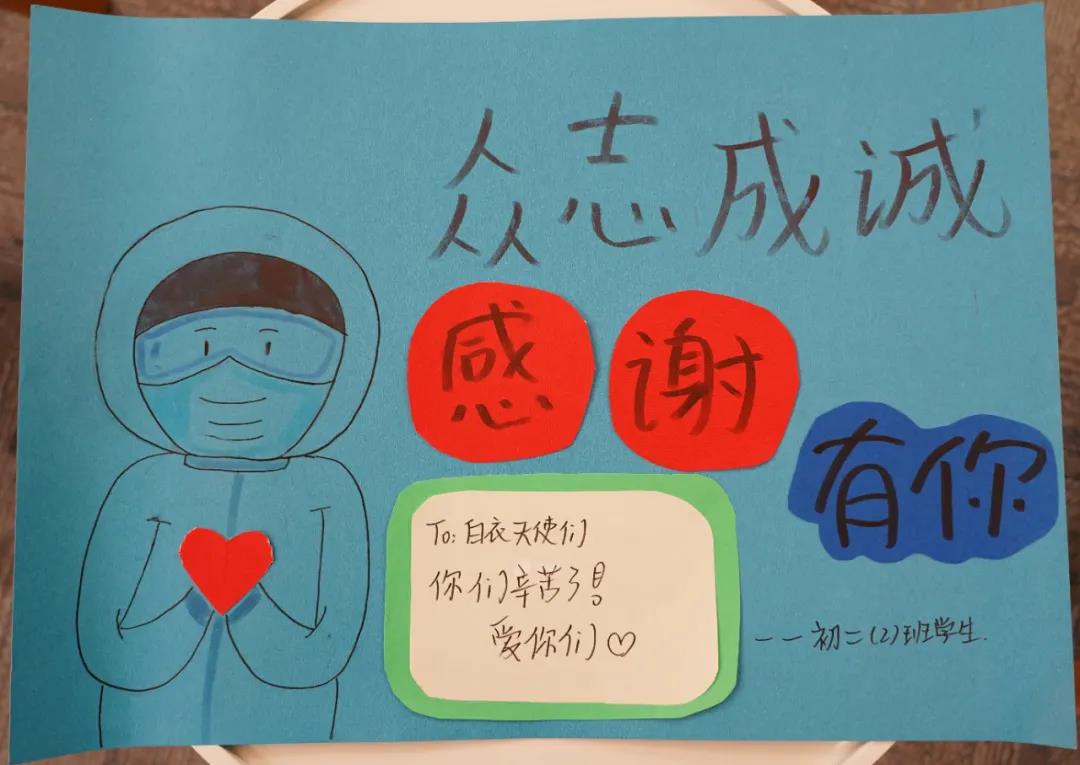 众志成诚
感谢
有你
To: 白衣天使们
你们辛苦了!
爱你们♡
——初二(2)班学生.